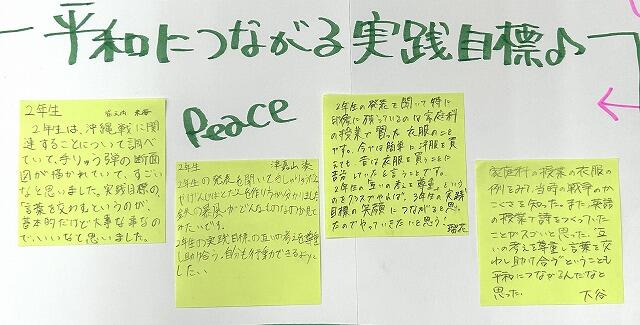 平和につながる実践目標♪
Peace
2年生
2年生は、沖縄戦に関
連することについて調べ
ていて、手りゅう弾の断面
図が描かれていて、すごい
なと思いました。実践目標の
言葉を交わすというのが、
基本的だけど大事な事なの
でいいなと思いました。
2年生
2年生の発表を聞いて
作り方が分かりました
鉄の暴風がどんなものなのか見て
みたいです。
2年生の実践目標の互いの考えを尊重
し助け合う。自分も行動できるように
したい。
2年生の発表を聞いて特に
印象に残っているのは家庭科
の授業で習った衣服のこと
やす。今では簡単に洋服を買
えても 昔は衣服を買うことに
苦労していたと言うことです。
2年生の互いの考えを尊重 という
のをクリアすれば、3年生の実践
目標の笑顔 につながると思っ
たのでやっていきたいと思う!
家庭科の授業の衣服の
例をみて、当時の戦争のか
こくさを知った。また、英語
の授業で詩をつくっていた
ことがスゴいと思った。互
いの考えを尊重し言葉を交
わし助け合うということも
平和につながるんだなと
思った。 大谷